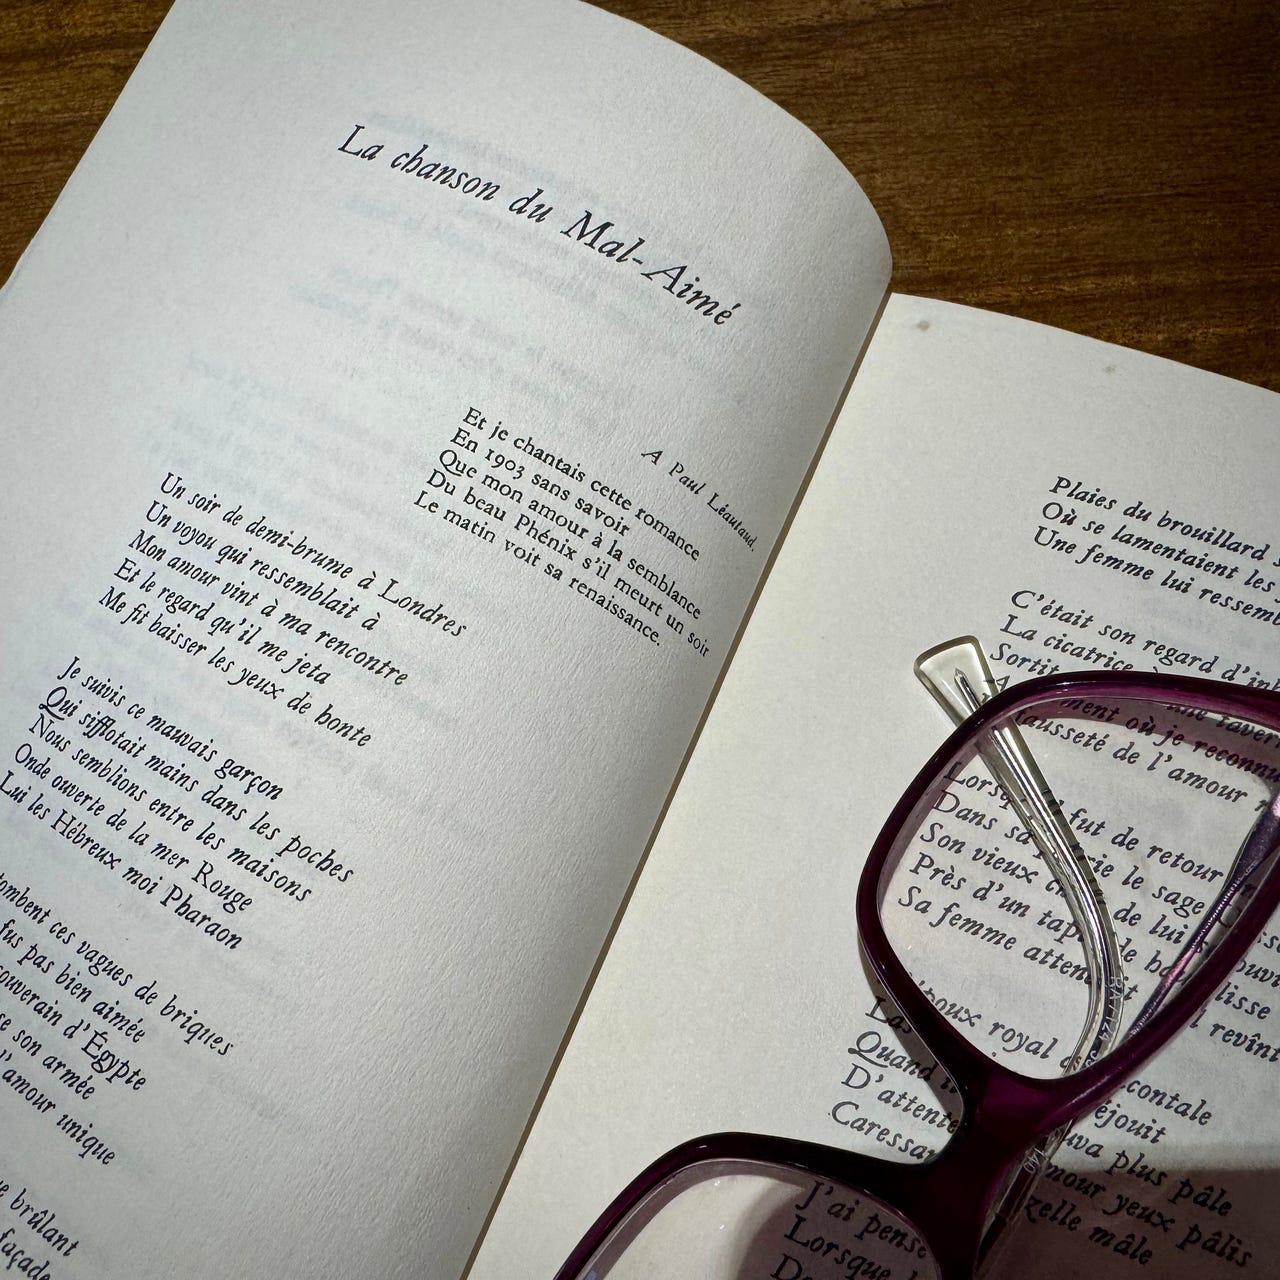 La chanson du Mal-Aimé
A Paul Léautaud.
Et je chantais cette romance
En 1903 sans savoir
Que mon amour à la semblance
Du beau Phénix s'il meurt un soir
Le matin voit sa renaissance.
Un soir de demi-brume à Londres
Un voyou qui ressemblait à
Mon amour vint à ma rencontre
Et le regard qu'il me jeta
Me fit baisser les yeux de honte
Je suivis ce mauvais garçon
Qui sifflotait mains dans les poches
Nous semblions entre les maisons
Onde ouverte de la mer Rouge
Lui les Hébreux moi Pharaon
tombent ces vagues de briques
fus pas bien aimée
souverain d'Égypte
son armée
l'amour unique
brûlant
façade
Plaies du brouillard
Où se lamentaient les
Une femme lui ressemb
C'était son regard d'inh
La cicatrice à
Sortit une taver
ment où je reconnu
ausseté de l'amour
Lorsqu'il fut de retour
Dans sa patrie le sage
Son vieux de lui
Près d'un tapis de lisse
Sa femme attendait revînt
poux royal
Las
Quand contale
D'attente éjouit
Caressa plus pâle
amour yeux pâlis
zelle mâle
J'ai pensé
Lorsque
BR7124
140